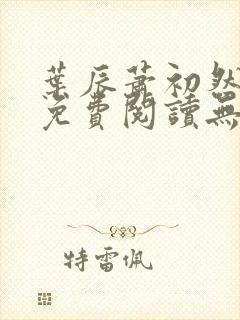 葉辰蕭初然
免費閱讀無
特雷佩